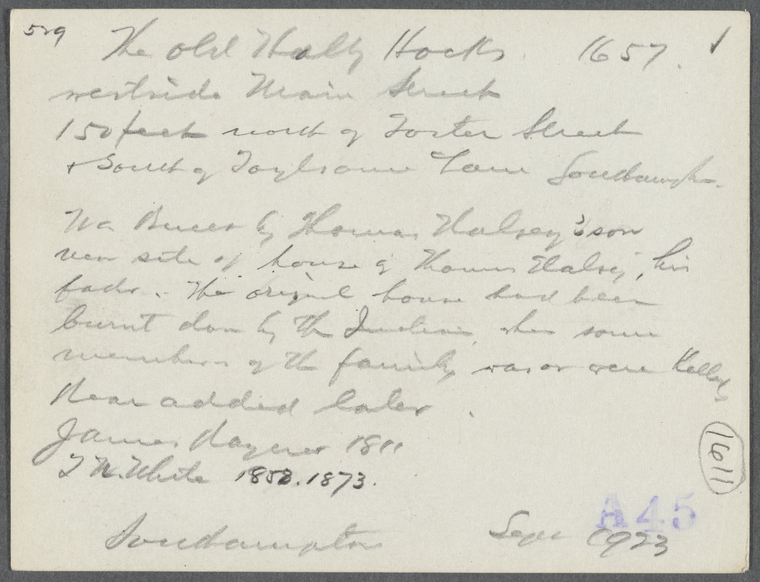 529 The old Halsey House. 1657.
westside Main Street
150 feet north of Foster Street
+ South of Toylsome Lane Southampton.
Was Built by Thomas Halsey's son
near site of house of Thomas Halsey, his
father. The original house had been
burnt down by the Indians, when some
members of the family, was or were Killed
Rear added later.
James 1811
T W. White 1858. 1873.
1611
A45
Southampton Sept 1923